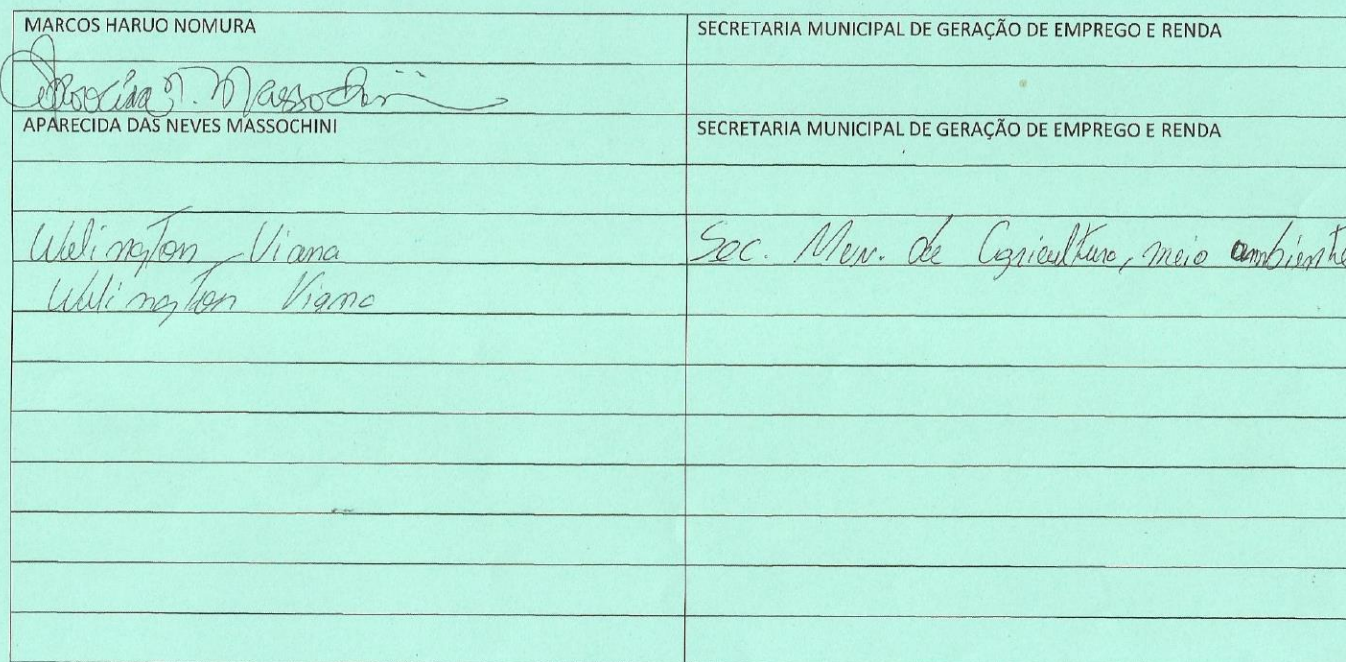 MARCOS HARUO NOMURA SECRETARIA MUNICIPAL DE GERAÇÃO DE EMPREGO E RENDA
Aparecida N. Massochini
APARECIDA DAS NEVES MASSOCHINI SECRETARIA MUNICIPAL DE GERAÇÃO DE EMPREGO E RENDA
Welington Viana Sec. Mun. de Agricultura, meio ambiente
Welington Viana